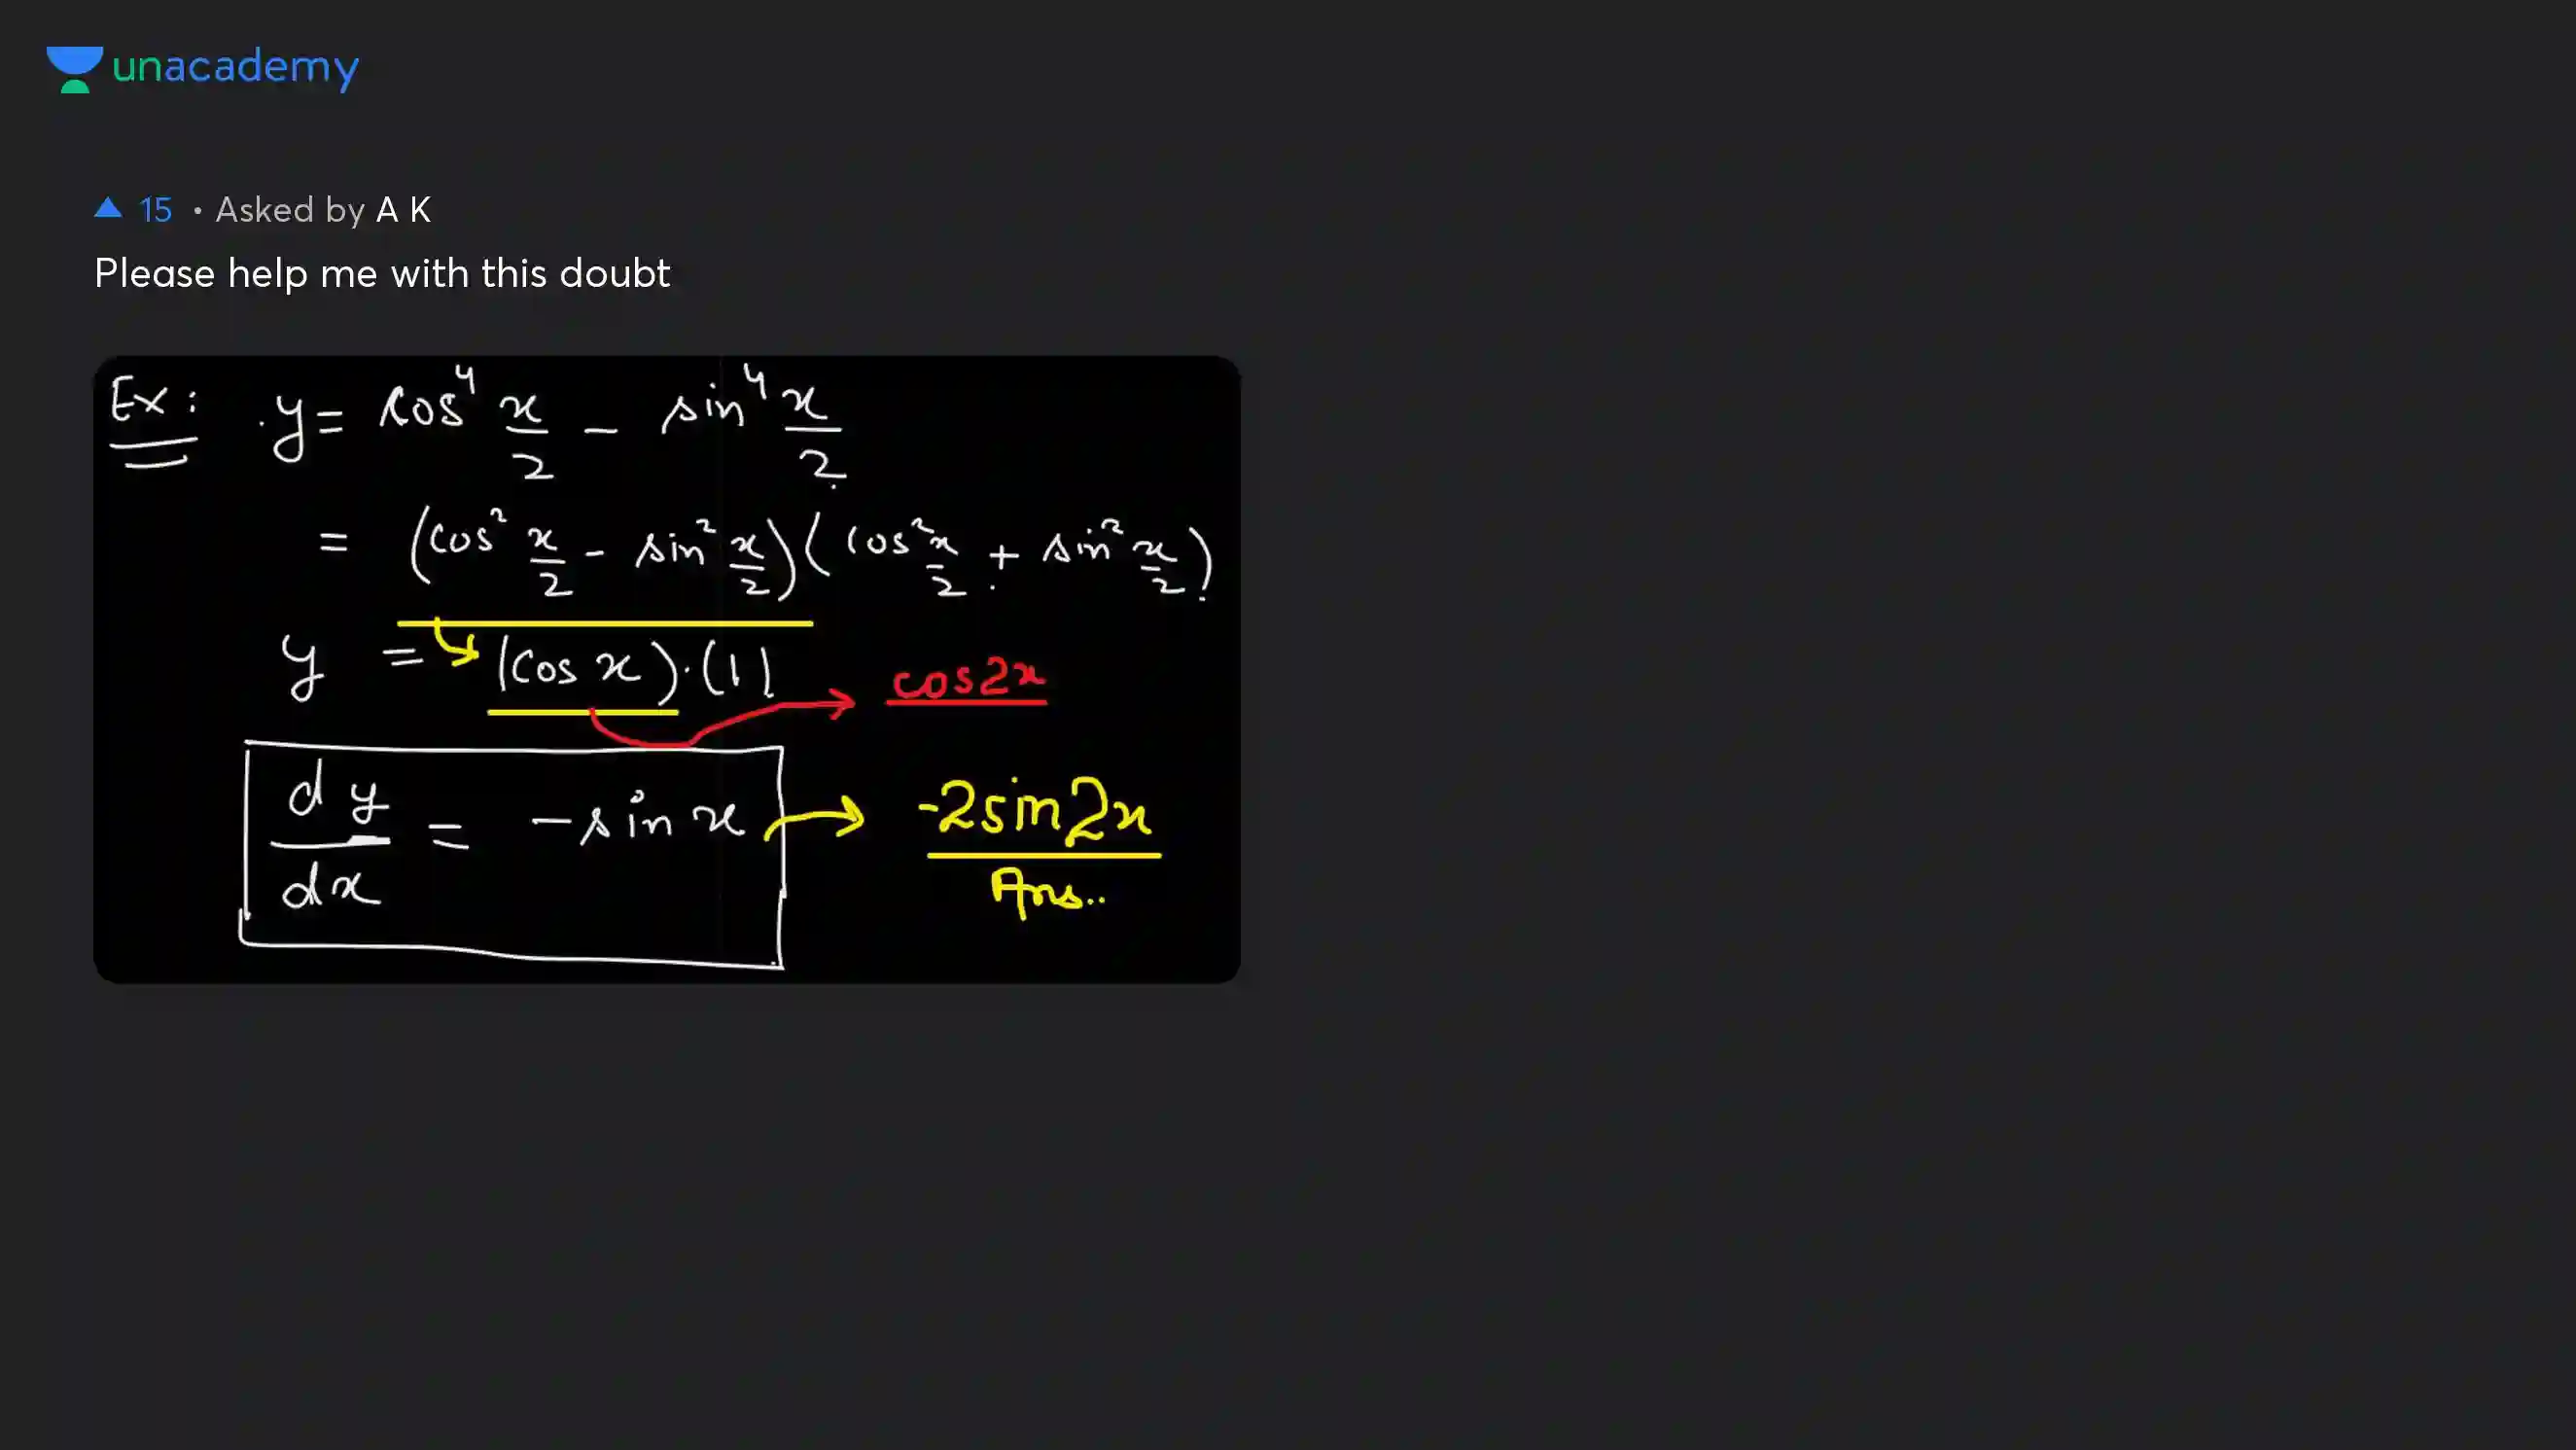 unacademy
15 • Asked by A K
Please help me with this doubt
Ex: .y = cos⁴ x/2 − sin⁴ x/2
= (cos² x/2 − sin² x/2)(cos² x/2 + sin² x/2)
y = (cos x)·(1)
cos2x
dy/dx = −sin x
-2sin2x
Ans..